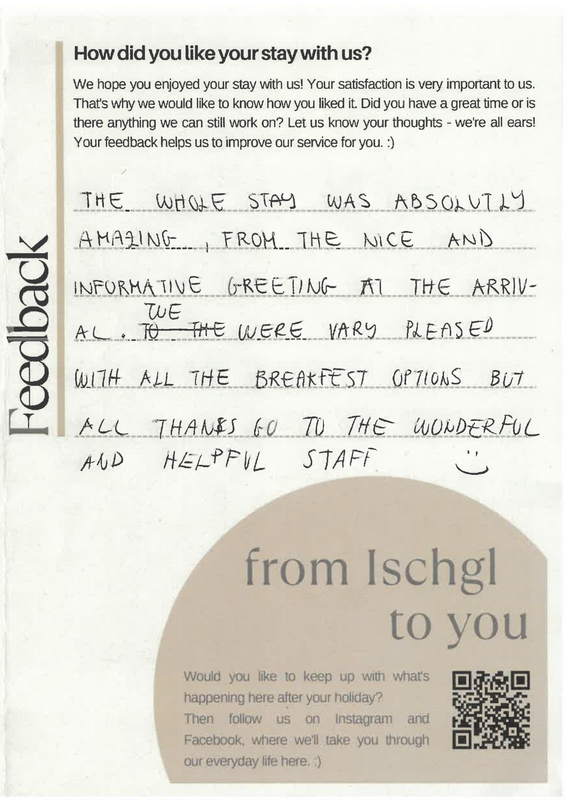 How did you like your stay with us?
We hope you enjoyed your stay with us! Your satisfaction is very important to us.
That's why we would like to know how you liked it. Did you have a great time or is
there anything we can still work on? Let us know your thoughts - we're all ears!
Your feedback helps us to improve our service for you. :)
Feedback
THE WHOLE STAY WAS ABSOLUTLY
AMAZING , FROM THE NICE AND
INFORMATIVE GREETING AT THE ARRIV-
WE
AL. TO THE WERE VARY PLEASED
WITH ALL THE BREAKFEST OPTIONS BUT
ALL THANKS GO TO THE WONDERFUL
AND HELPFUL STAFF :)
from Ischgl
to you
Would you like to keep up with what's
happening here after your holiday?
Then follow us on Instagram and
Facebook, where we'll take you through
our everyday life here. :)